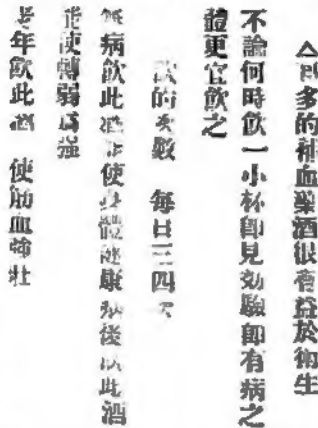 多的補血藥酒很有益於衛生
不論何時飲一小杯即見効驗即有病之
體更宜飲之
飲的次數　每日三四次
無病飲此酒能使身體健康病後飲此酒
能使轉弱爲强
老年飲此酒　使筋血強壯